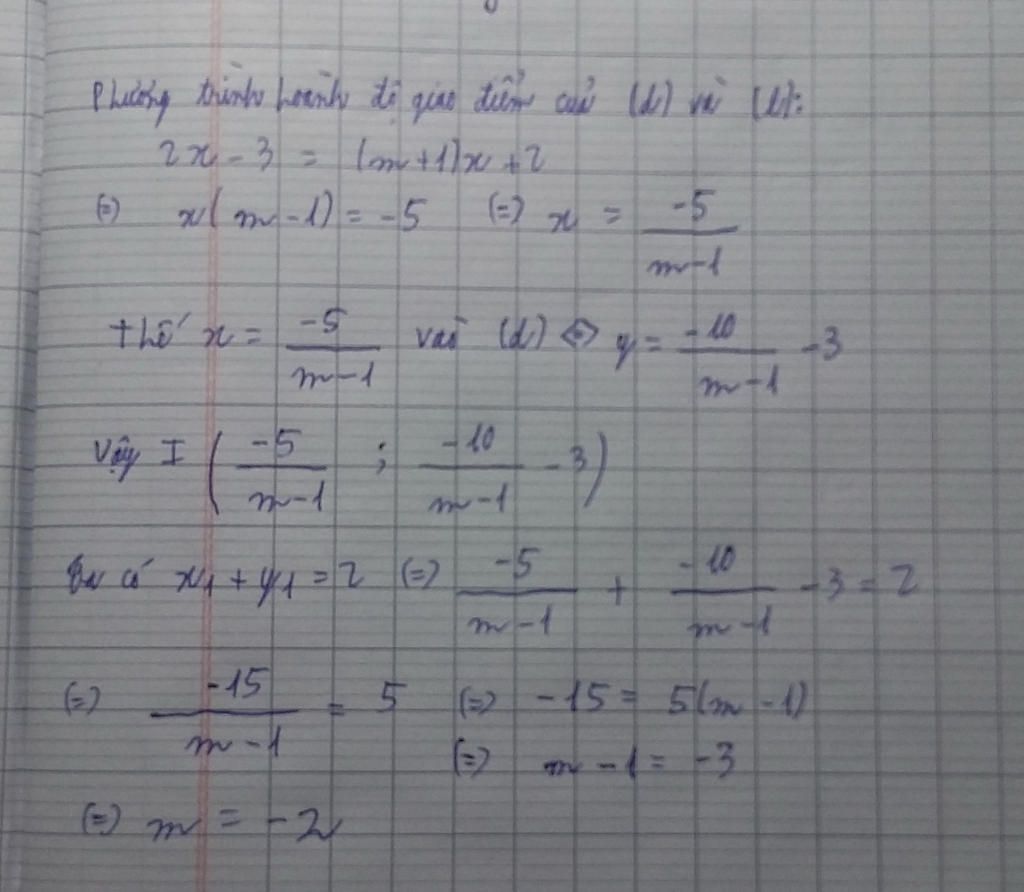 Phương trình hoành độ giao điểm của (d) và (l):
2x - 3 = (m+1)x + 2
(=) x(m-1) = -5 (=) x = -5/(m-1)
thế x = -5/(m-1) vào (d) <=> y = -10/(m-1) - 3
Vậy I ( -5/(m-1) ; -10/(m-1) - 3 )
có x1 + y1 = 2 (=) -5/(m-1) + -10/(m-1) - 3 = 2
(=) -15/(m-1) = 5 (=) -15 = 5(m-1)
(=) m - 1 = -3
(=) m = -2